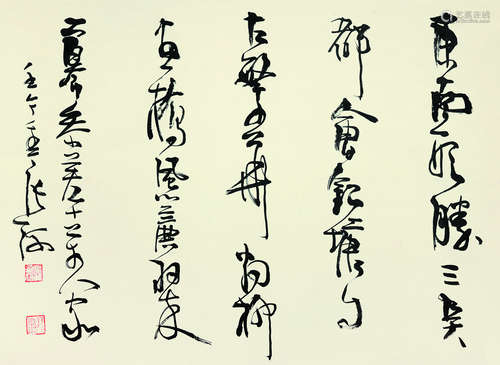 東南形勝三吴
都會錢塘自
古繁華烟柳
畫橋風簾翠
幕参差十万人家
壬午張海